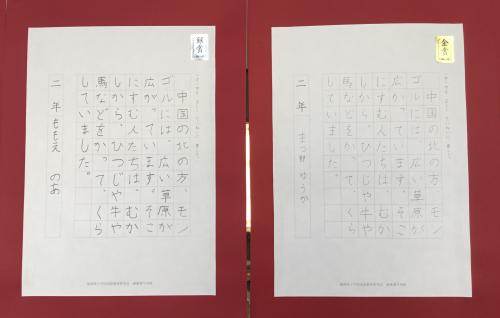 銀賞
中国の北の方、モン
ゴルには、広い草原が
広がっています。そこ
にすむ人たちは、むか
しから、ひつじや牛や
馬などをかって、くら
していました。
二年 ももえ のあ
金賞
中国の北の方、モン
ゴルには、広い草原が
広がっています。そこ
にすむ人たちは、むか
しから、ひつじや牛や
馬などをかって、くら
していました。
二年 ゆうか